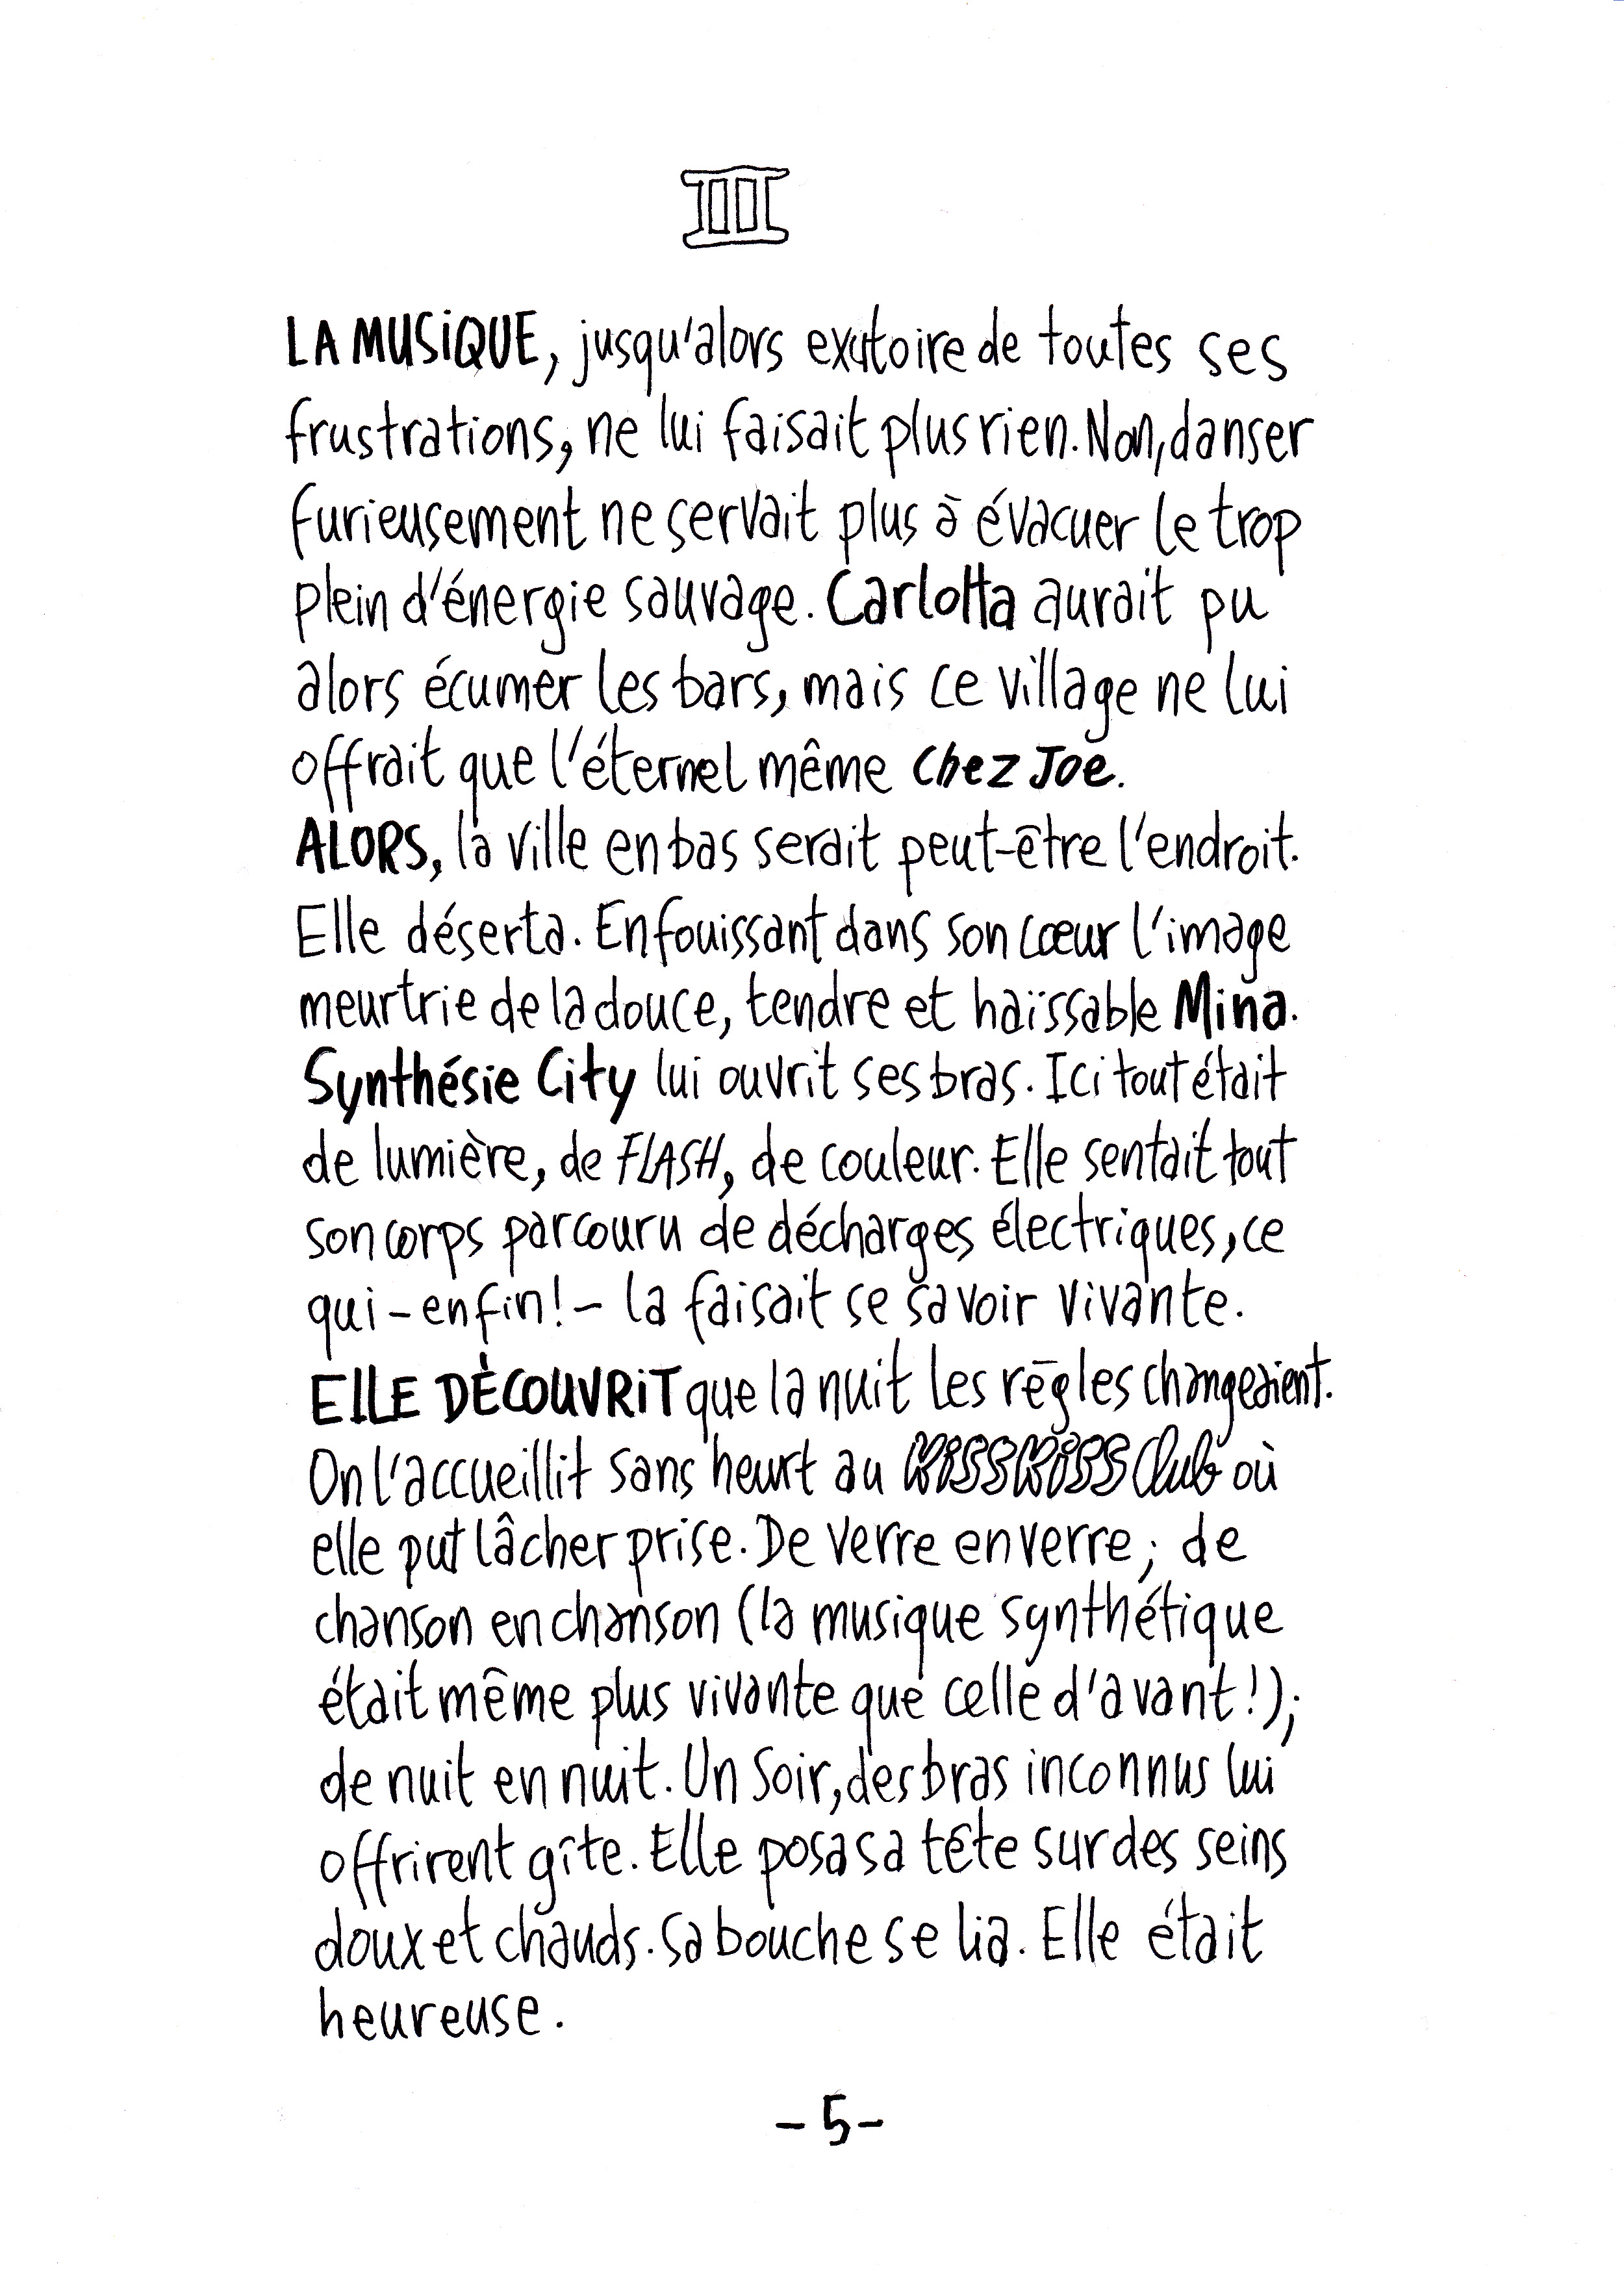 III
LA MUSiQUE, jusqu'alors exutoire de toutes ses
frustrations, ne lui faisait plus rien. Non, danser
furieusement ne servait plus à évacuer le trop
plein d'énergie sauvage. Carlotta aurait pu
alors écumer les bars, mais ce village ne lui
offrait que l'éternel même Chez Joe.
ALORS, la ville en bas serait peut-être l'endroit.
Elle déserta. Enfouissant dans son cœur l'image
meurtrie de la douce, tendre et haïssable Mina.
Synthésie City lui ouvrit ses bras. Ici tout était
de lumière, de FLASH, de couleur. Elle sentait tout
son corps parcouru de décharges électriques, ce
qui - enfin! - la faisait se savoir vivante.
ELLE DÉCOUVRiT que la nuit les règles changeaient.
On l'accueillit sans heurt au KISS KISS Club où
elle put lâcher prise. De verre en verre; de
chanson en chanson (la musique synthétique
était même plus vivante que celle d'avant!);
de nuit en nuit. Un soir, des bras inconnus lui
offrirent gîte. Elle posa sa tête sur des seins
doux et chauds. Sa bouche se lia. Elle était
heureuse.
- 5 -